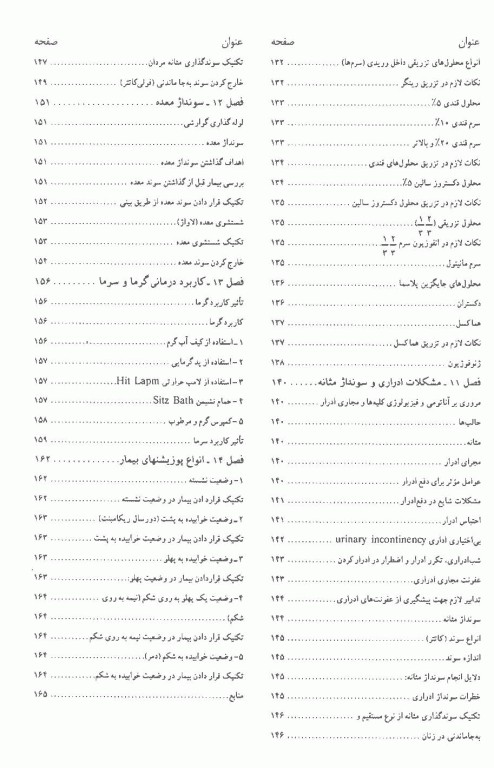 عنوان صفحه
انواع محلول‌های تزریقی داخل وریدی (سرم‌ها) ................ ۱۳۲
نکات لازم در تزریق رینگر ................ ۱۳۲
محلول قندی ۵٪ ................ ۱۳۳
سرم قندی ۱۰٪ ................ ۱۳۳
سرم قندی ۲۰٪ و بالاتر ................ ۱۳۳
نکات لازم در تزریق محلول‌های قندی ................ ۱۳۴
محلول دکستروز سالین ۵٪ ................ ۱۳۴
نکات لازم در تزریق محلول دکستروز سالین ................ ۱۳۵
محلول تزریقی (۲/۳ ۱/۳) ................ ۱۳۵
نکات لازم در انفوزیون سرم ۲/۳ ۱/۳ ................ ۱۳۵
سرم مانیتول ................ ۱۳۵
محلول‌های جایگزین پلاسما ................ ۱۳۶
دکستران ................ ۱۳۶
هماکسل ................ ۱۳۷
نکات لازم در تزریق هماکسل ................ ۱۳۷
ژنوفوزیون ................ ۱۳۸
فصل ۱۱ ـ مشکلات ادراری و سونداژ مثانه ...... ۱۴۰
مروری بر آناتومی و فیزیولوژی کلیه‌ها و مجاری ادرار ......... ۱۴۰
حالب‌ها ................ ۱۴۰
مثانه ................ ۱۴۰
مجرای ادرار ................ ۱۴۰
عوامل مؤثر برای دفع ادرار ................ ۱۴۰
مشکلات شایع در دفع ادرار ................ ۱۴۱
احتباس ادرار ................ ۱۴۱
بی‌اختیاری اداری urinary incontinency ................ ۱۴۲
شب‌ادراری، تکرر ادرار و اضطرار در ادرار کردن ................ ۱۴۳
عفونت مجاری ادراری ................ ۱۴۳
تدابیر لازم جهت پیشگیری از عفونت‌های ادراری ................ ۱۴۴
سونداژ مثانه ................ ۱۴۴
انواع سوند (کاتتر) ................ ۱۴۵
اندازه سوند ................ ۱۴۵
دلایل انجام سونداژ مثانه: ................ ۱۴۵
خطرات سونداژ ادراری ................ ۱۴۵
تکنیک سوندگذاری مثانه از نوع مستقیم و ................ ۱۴۶
به‌جاماندنی در زنان ................ ۱۴۶
عنوان صفحه
تکنیک سوندگذاری مثانه مردان ................ ۱۴۷
خارج کردن سوند به‌جا ماندنی (فولی‌کاتتر) ................ ۱۴۹
فصل ۱۲ ـ سونداژ معده ................ ۱۵۱
لوله گذاری گوارشی ................ ۱۵۱
سونداژ معده ................ ۱۵۱
اهداف گذاشتن سونداژ معده ................ ۱۵۱
بررسی بیمار قبل از گذاشتن سوند معده ................ ۱۵۱
تکنیک قرار دادن سوند معده از طریق بینی ................ ۱۵۲
شستشوی معده (لاواژ) ................ ۱۵۳
تکنیک شستشوی معده ................ ۱۵۳
خارج کردن سوند معده ................ ۱۵۴
فصل ۱۳ ـ کاربرد درمانی گرما و سرما ......... ۱۵۶
تأثیر کاربرد گرما ................ ۱۵۶
کاربرد گرما ................ ۱۵۶
۱ـ استفاده از کیف آب گرم ................ ۱۵۶
۲ - استفاده از پد گرمایی ................ ۱۵۷
۳ - استفاده از لامپ حرارتی Hit Lapm ................ ۱۵۷
۴ - حمام نشیمن Sitz Bath ................ ۱۵۷
۵ - کمپرس گرم و مرطوب ................ ۱۵۸
تأثیر کاربرد سرما ................ ۱۵۹
فصل ۱۴ ـ انواع پوزیشنهای بیمار ............. ۱۶۲
۱- وضعیت نشسته ................ ۱۶۲
تکنیک قرار دادن بیمار در وضعیت نشسته ................ ۱۶۲
۲ ـ وضعیت خوابیده به پشت (دورسال ریکامبنت) ................ ۱۶۳
تکنیک قرار دادن بیمار در وضعیت خوابیده به پشت ................ ۱۶۳
۳ ـ وضعیت خوابیده به پهلو ................ ۱۶۳
تکنیک قراردادن بیمار در وضعیت پهلو: ................ ۱۶۳
۴- وضعیت یک پهلو به روی شکم (نیمه به روی ................ ۱۶۴
شکم) ................ ۱۶۴
تکنیک قرار دادن بیمار در وضعیت نیمه به روی شکم ................ ۱۶۴
۵- وضعیت خوابیده به شکم (دمر) ................ ۱۶۴
تکنیک قرار دادن بیمار در وضعیت خوابیده به شکم ................ ۱۶۴
منابع ................ ۱۶۵